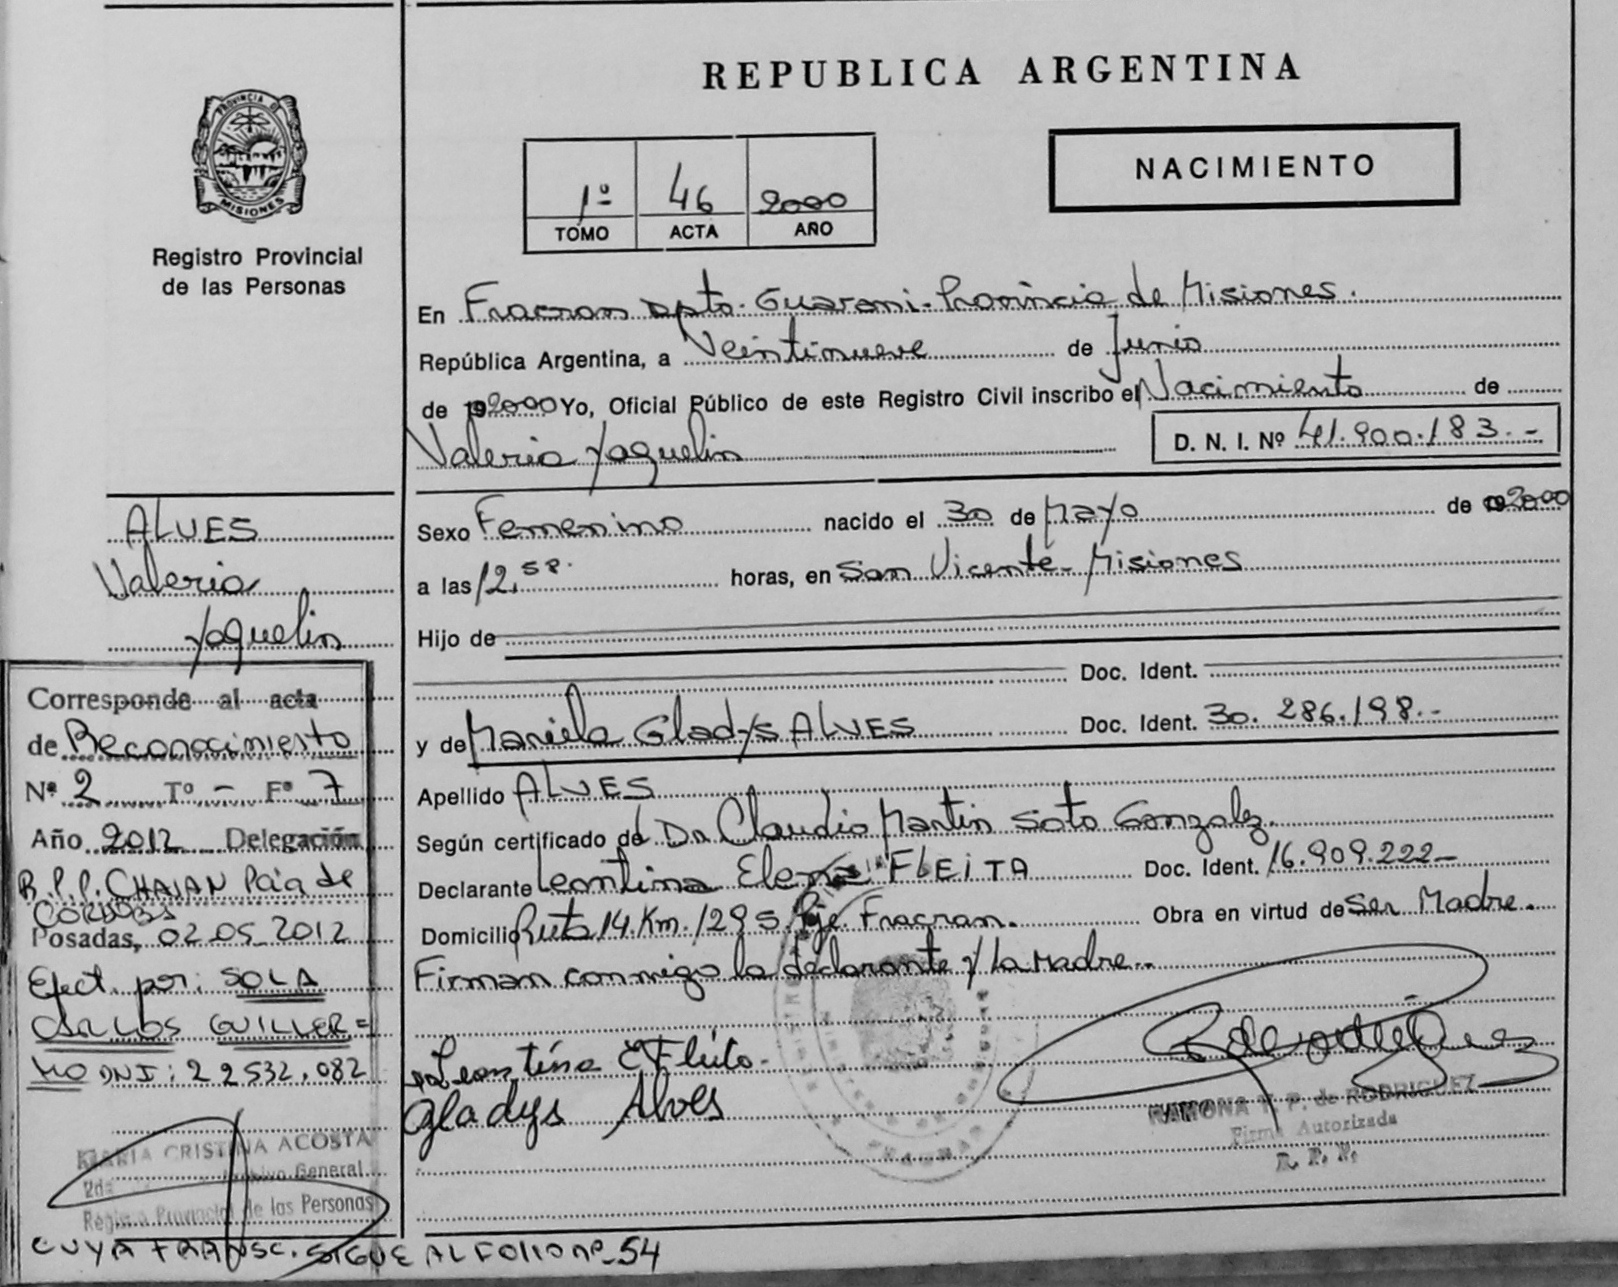 REPUBLICA ARGENTINA
PROVINCIA D
MISIONES
Registro Provincial
de las Personas
1º 46 2000
TOMO ACTA AÑO
NACIMIENTO
En Fracran Dpto. Guarani - Provincia de Misiones.
República Argentina, a Veintinueve de Junio
de 192000 Yo, Oficial Público de este Registro Civil inscribo el Nacimiento de
Valeria Yaquelin D. N. I. Nº 41.900.183.-
ALVES
Valeria
Yaquelin
Sexo Femenino nacido el 30 de Mayo de 2000
a las 12,58. horas, en San Vicente - Misiones
Hijo de
Doc. Ident.
y de Mariela Gladys ALVES Doc. Ident. 30.286.198.-
Apellido ALVES
Según certificado del Dr. Claudio Martin Soto Gonzalz.
Declarante Leontina Elena FLEITA Doc. Ident. 16.909.222-
Domicilio Ruta 14 Km. 1295 Pje. Fracran. Obra en virtud de Ser Madre.
Firman conmigo la declarante y la Madre.
Leontina E Fleita.
Gladys Alves
RAMONA P. de RODRIGUEZ
Firma Autorizada
Corresponde al acta
de Reconocimiento
Nº 2 Tº - Fº 7
Año 2012 Delegación
R.P.P. CHAJAN Pcia de
CORDOBA
Posadas, 02.05.2012
Efect. por: SOLA
CARLOS GUILLER=
MO DNI: 22532.082
MARIA CRISTINA ACOSTA
Archivo General
Registro Provincial de las Personas
CUYA TRANSC. SIGUE AL FOLIO Nº 54